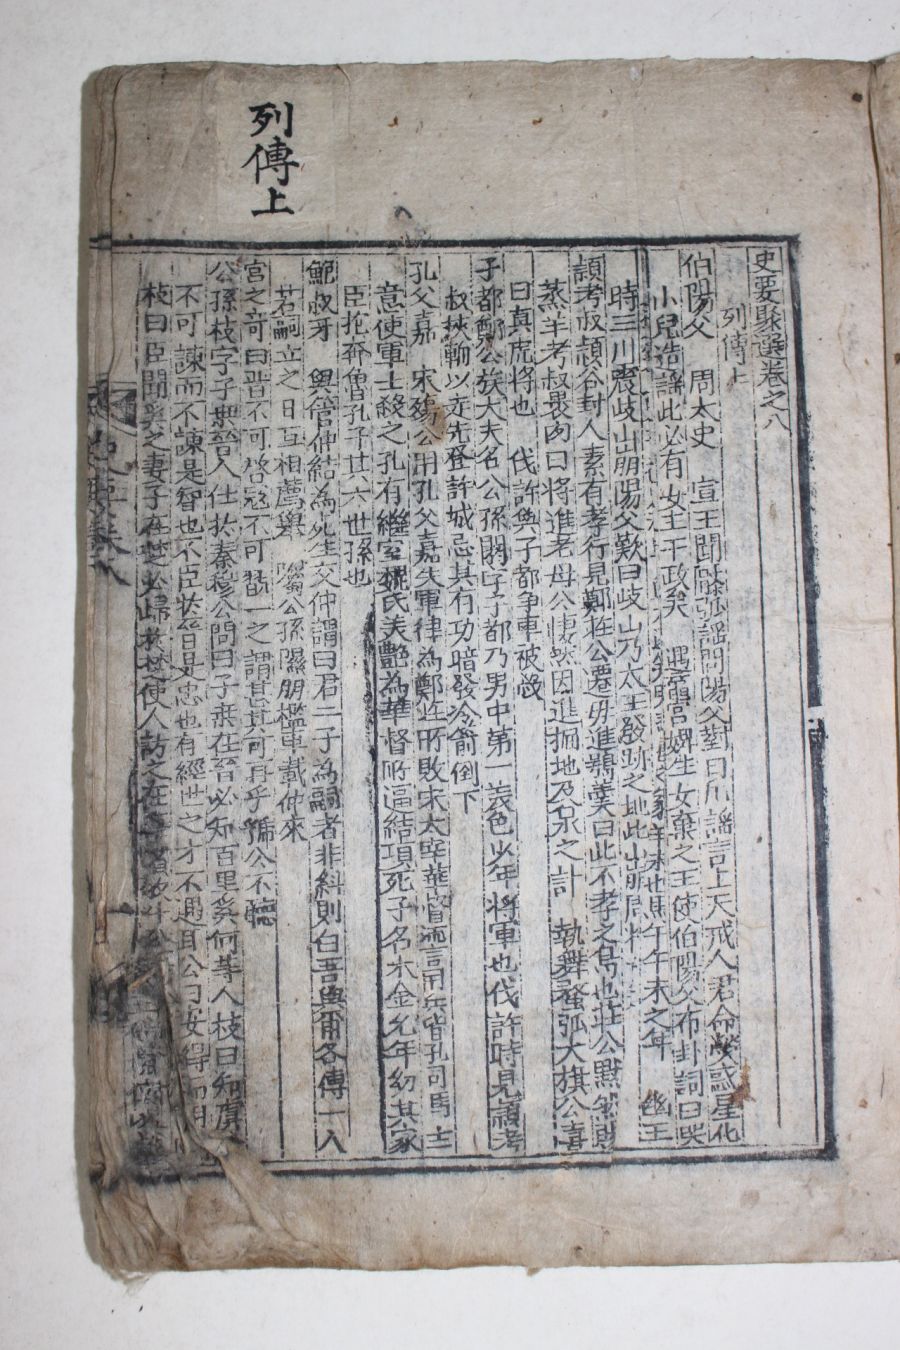 列傳上
史要聚選卷之八
列傳上
伯陽父 周太史 宣王聞檿弧謠問陽父對曰凡謠言上天戒人君命熒惑星化
小兒造謠此必有女主干政矣 宮婢生女棄之王使伯陽父布卦詞曰哭
羊未也馬午午未之年 幽王
時三川震岐山崩陽父歎曰岐山乃太王發跡之地此山崩周
頴考叔頴谷封人素有孝行見鄭莊公遷母進鴞羹曰此不孝之鳥也莊公默然賜
蒸羊考叔畏肉曰將進老母公悽然因進掘地及泉之計 執舞螯弧大旗公喜
曰真虎將也 伐許與子都争車被殺
子都鄭公族大夫名公孫閼字子都乃男中第一美色少年將軍也伐許時見頴考
叔挾輈以走先登許城忌其有功暗發冷箭倒下
孔父嘉 宋殤公用孔父嘉失軍律為鄭莊所敗宋太宰華督流言用兵皆孔司馬主
意使軍士殺之孔有繼室魏氏美艶為華督所逼結項死子名木金允年幼其家
臣抱奔魯孔子其六世孫也
鮑叔牙 與管仲結為死生交仲謂曰君二子為嗣者非糾則白吾與爾各傳一人
若嗣立之日互相薦舉 隰公孫隰朋檻車載仲來
宮之奇曰晋不可啓冦不可翫一之謂甚其可再乎 公不聽
公孫枝字子桑晉人仕於秦穆公問曰子桑在晉必知百里奚何等人枝曰知虞
不可諫而不諫是智也不臣於晉是忠也有經世之才不遇耳公曰安得
枝曰臣聞奚之妻子在楚必歸於楚使人訪之在